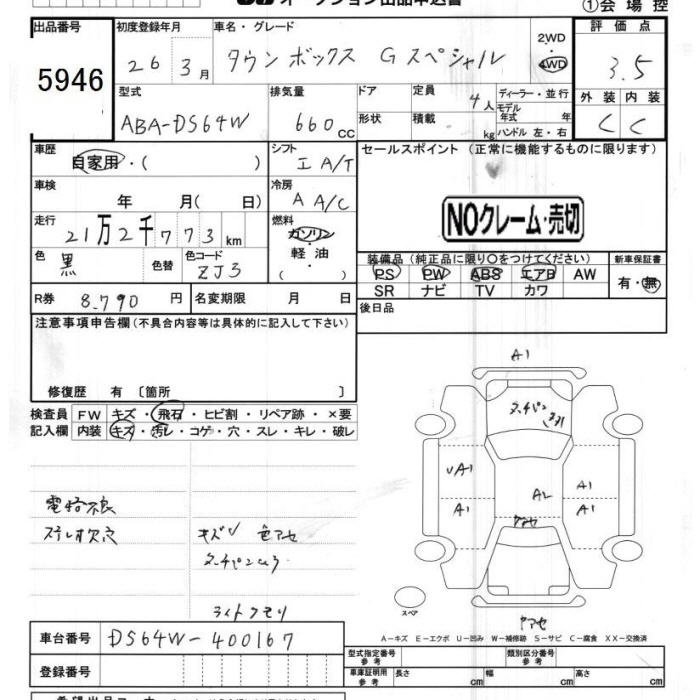 オークション出品申込書
①会場控
出品番号
5946
初度登録年月
26 3月
車名・グレード
タウンボックス Gスペシャル
2WD
・
4WD
評価点
3.5
型式
ABA-DS64W
排気量
660 CC
ドア
形状
定員
4人
積載
kg
ディーラー・並行
モデル
年式 年
ハンドル 左・右
外装 内装
C C
車歴
自家用・( )
シフト
I A/T
セールスポイント (正常に機能するものに限ります)
車検
年 月( 日)
冷房
A A/C
NOクレーム・売切
走行
21万2千773km
燃料
ガソリン
・
軽油
( )
色
黒
色替
色コード
ZJ3
装備品 (純正品に限り○をつけてください)
PS PW ABS エアB AW
SR ナビ TV カワ
新車保証書
有・無
R券 8.790 円
名変期限 月 日
後日品
注意事項申告欄(不具合内容等は具体的に記入して下さい)
修復歴 有 〔箇所 〕
検査員
記入欄
FW キズ・飛石・ヒビ割・リペア跡・×要
内装 キズ・汚レ・コゲ・穴・スレ・キレ・破レ
電格不良
ステレオ欠品
キズU 色アセ
ライトクモリ
A1
UA1
A1
A1
A1
スペア
ヤアセ
A－キズ E－エクボ U－凹み W－補修跡 S－サビ C－腐食 XX－交換済
車台番号 DS64W-400167
登録番号
型式指定番号
参考
類別区分番号
参考
車庫証明用
参考
長さ cm
幅 cm
高さ cm